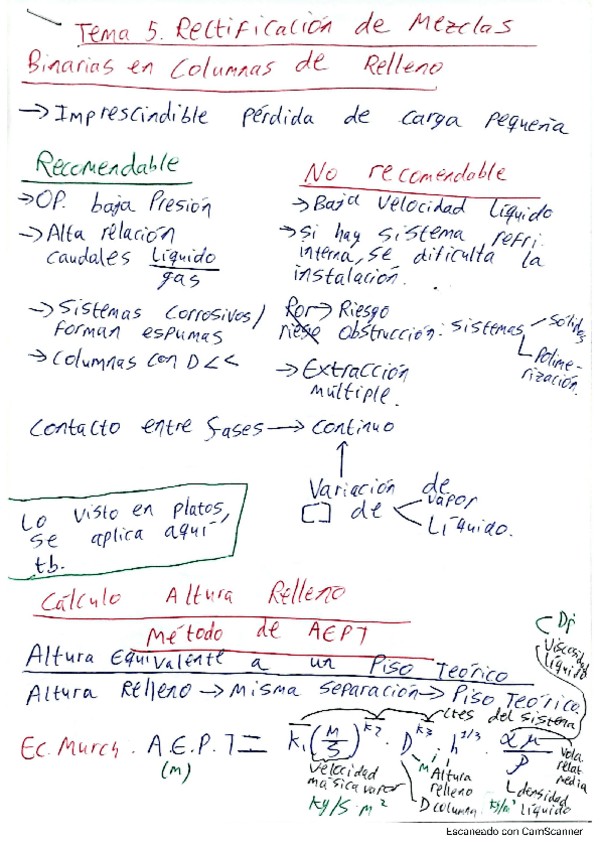 Tema 5. Rectificación de Mezclas
Binarias en Columnas de Relleno
→ Imprescindible pérdida de carga pequeña
Recomendable
→ OP. baja Presión
→ Alta relación
caudales líquido
gas
→ Sistemas corrosivos/
forman espumas
→ Columnas con D<<
No recomendable
→ Baja velocidad líquido
→ Si hay sistema refri.
interna, se dificulta la
instalación.
→ Riesgo
obstrucción: sistemas
Sólidos
Polime-
rización.
→ Extracción
múltiple.
Contacto entre fases → continuo
Variación de
[] de
vapor
Líquido.
Lo visto en platos,
se aplica aquí
tb.
Cálculo Altura Relleno
Método de AEPT
Altura Equivalente a un Piso Teórico
Altura Relleno → Misma separación → Piso Teórico.
Ec. Murch. A.E.P.T = K1 (M/S)^K2 · D^K3 · h^1/3 · αμ/ρ
(m)
ctes del sistema
Viscosidad
líquido
vola.
relat
media
Velocidad
másica vapor
kg/s·m²
m
Altura
relleno
D columna
kg/m³
densidad
líquido
Escaneado con CamScanner